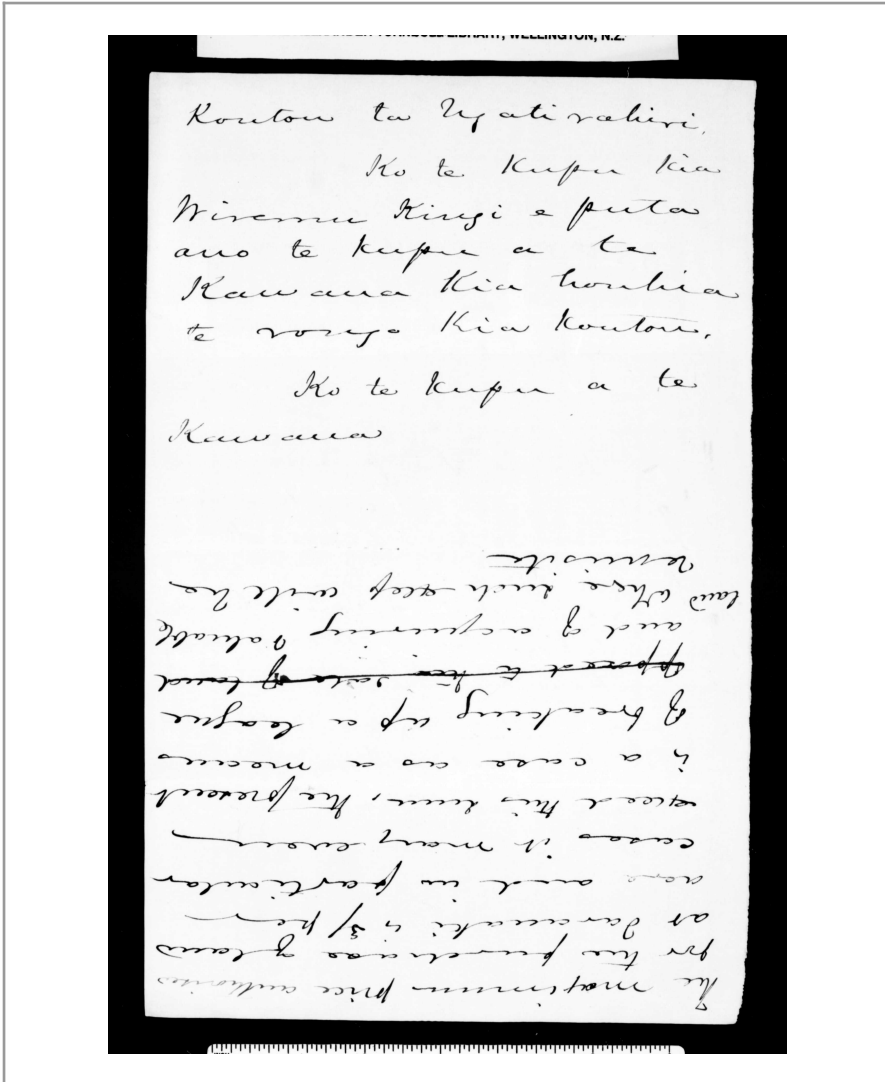 TURNBULL LIBRARY, WELLINGTON, N.Z.
Koutou ta Ngatirahiri,
Ko te Kupu Kia
Wiremu Kingi e puta
ano te kupu a te
Kawana Kia houhia
te rongo Kia Koutou,
Ko te kupu a te
Kawana
The maximum price authorised
for the purchase of land
at Taranaki is 3/ per
acre and in particular
cases it may even
exceed this sum, the present
is a case as a means
of breaking up a league
opposed to the sale of land
and of acquiring valuable
land where such step will be
requisite